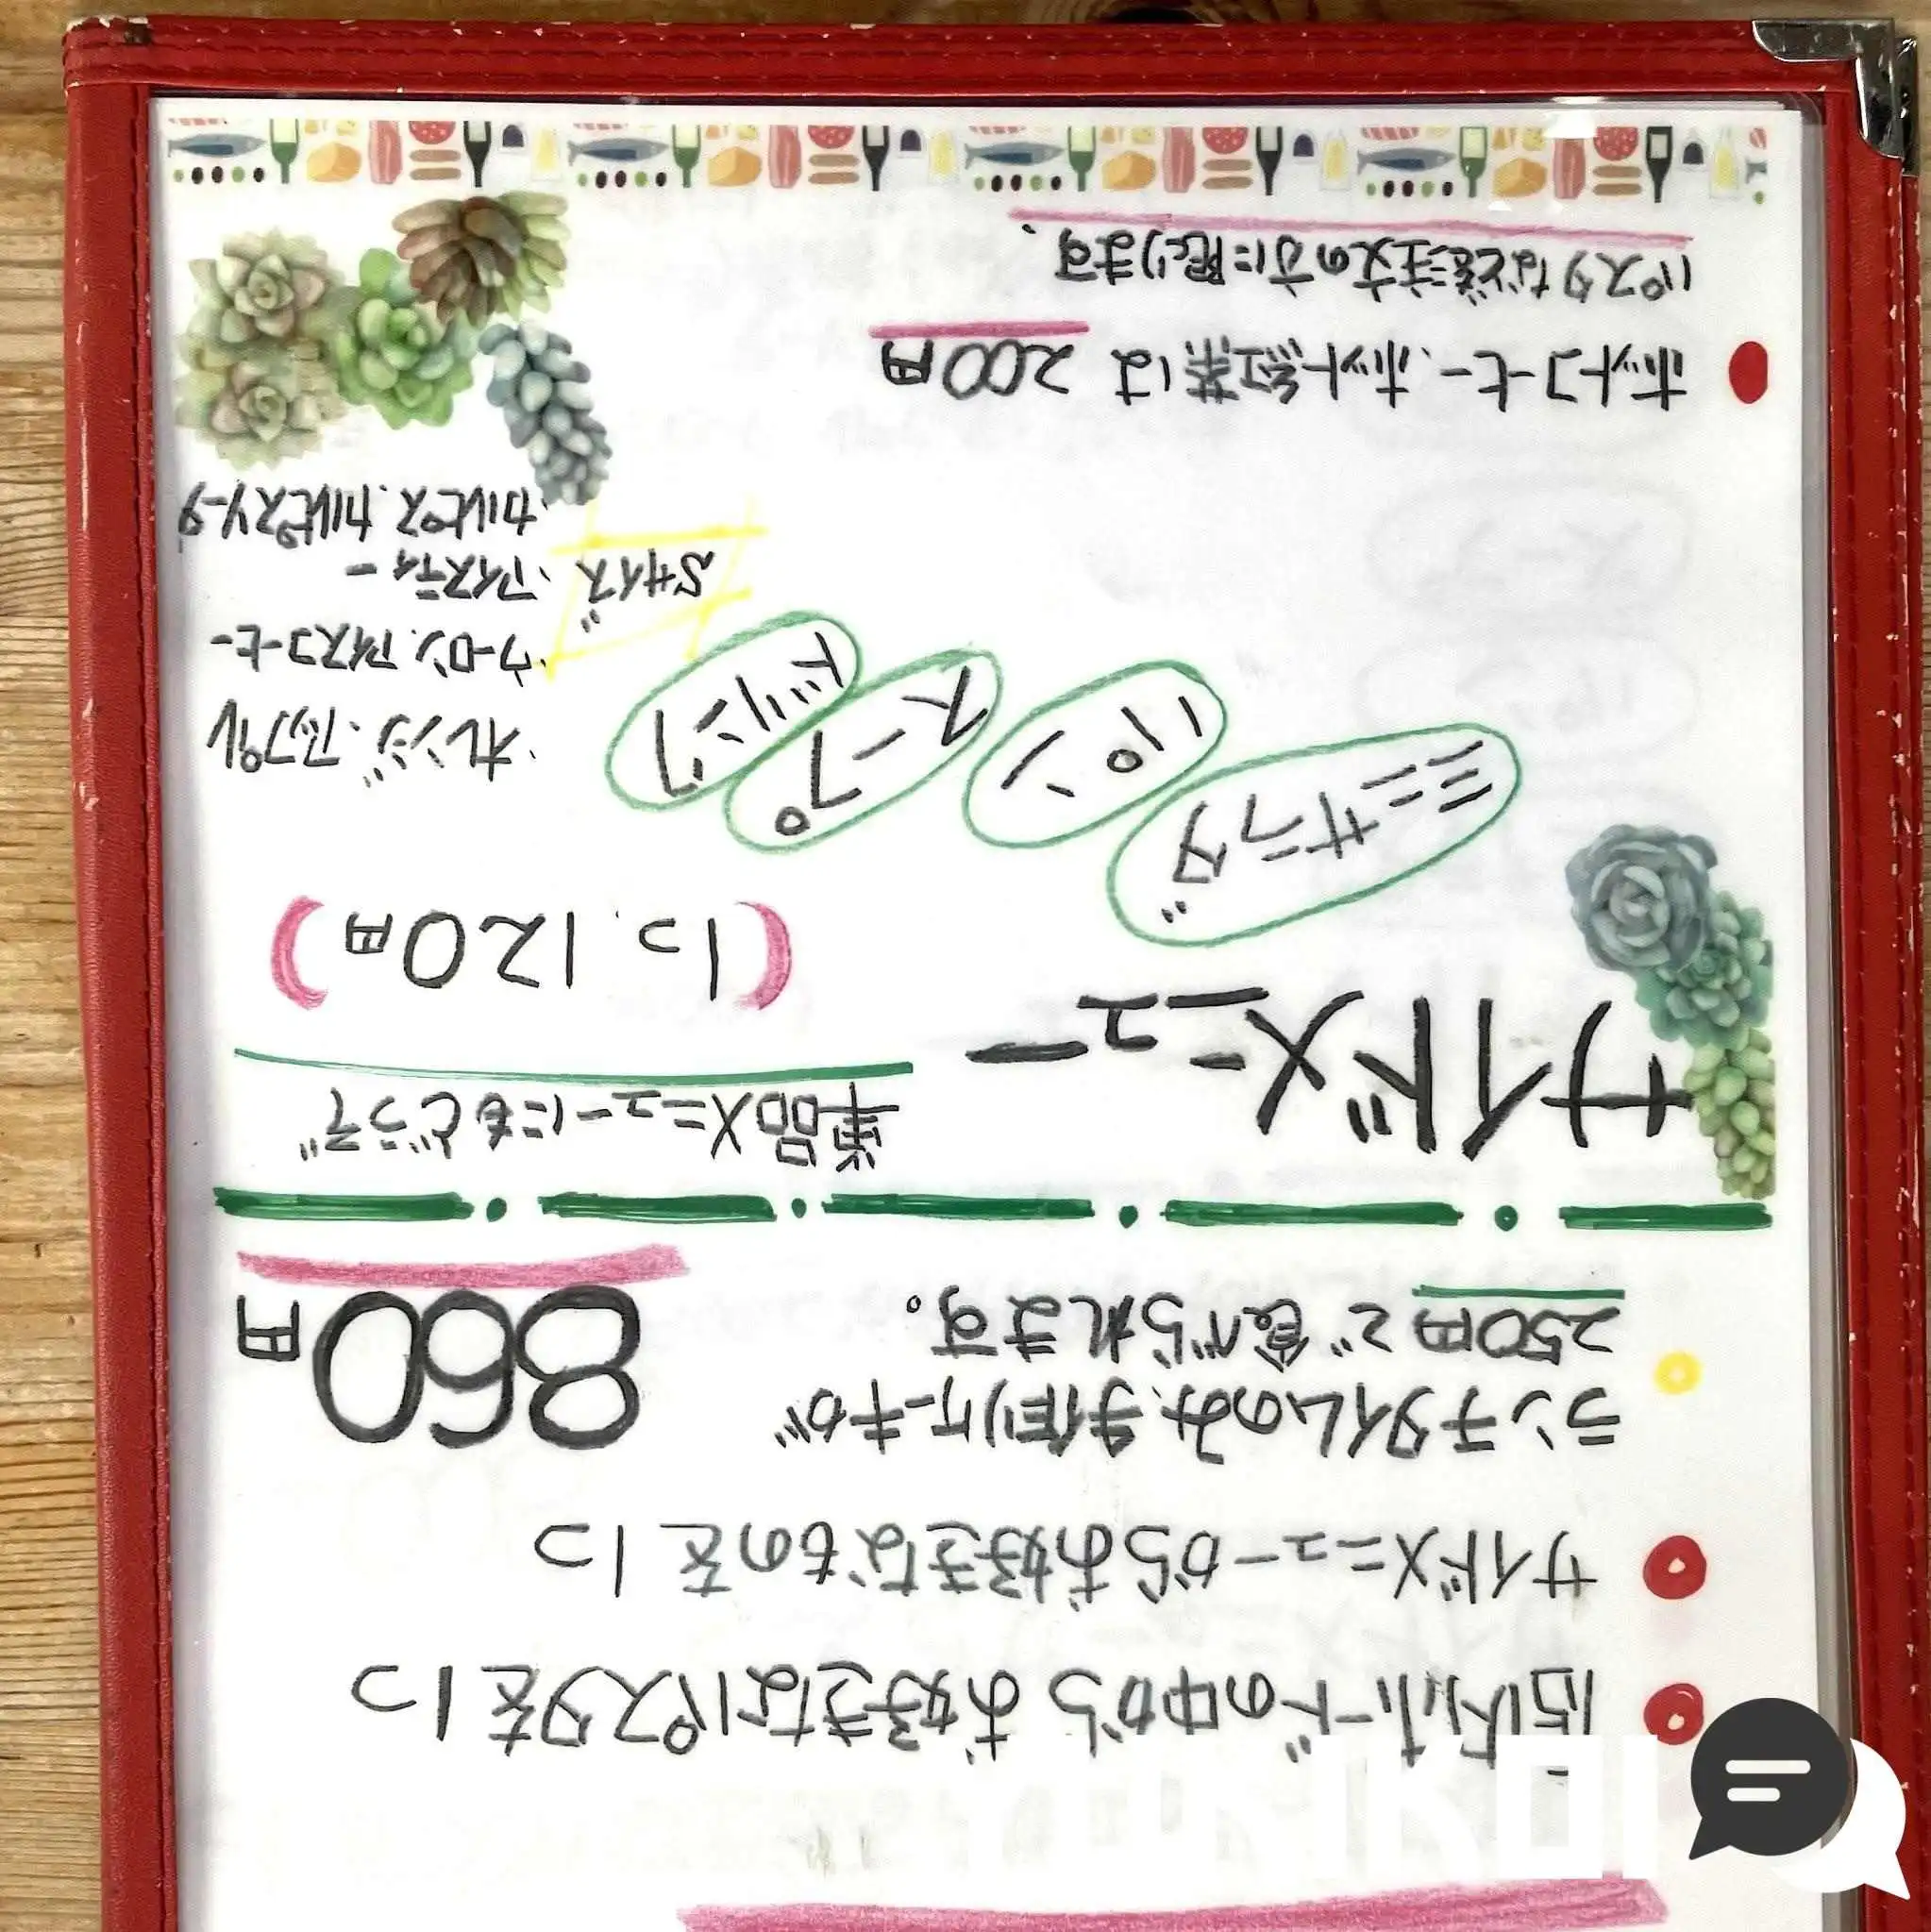 店内ボードの中からお好きなパスタを1つ
サイドメニューからお好きなものを1つ
ランチタイムのみ、手作りケーキが
250円で食べられます。
860円
サイドメニュー
単品メニューにもどうぞ
(1つ、120円)
ミニサラダ
パン
スープ
ドリンク
Sサイズ
・オレンジ、アップル
・ウーロン、アイスコーヒー
・アイスティー
・カルピス、カルピスソーダ
ホットコーヒー、ホット紅茶は200円
パスタなど御注文の方に限ります、